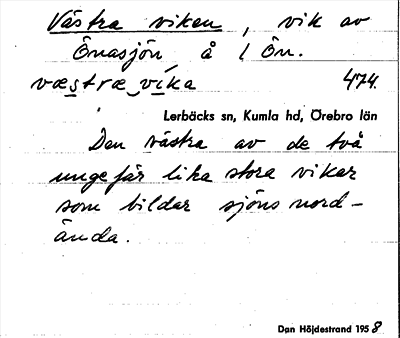 Västra viken, vik av
Önasjön, å l Ön.
væstræ vika 474.
Lerbäcks sn, Kumla hd, Örebro län
Den västra av de två
ungefär lika stora vikar
som bildar sjöns nord-
ända.
Dan Höjdestrand 1958